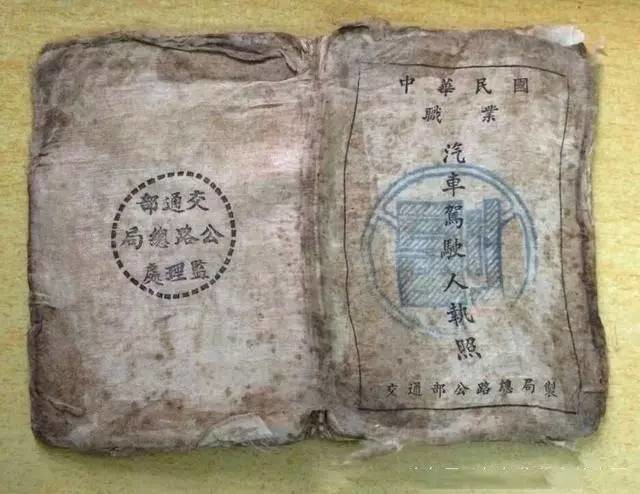 交通部
公路總局
監理處
中華民國
職業
汽車駕駛人執照
交通部公路總局製